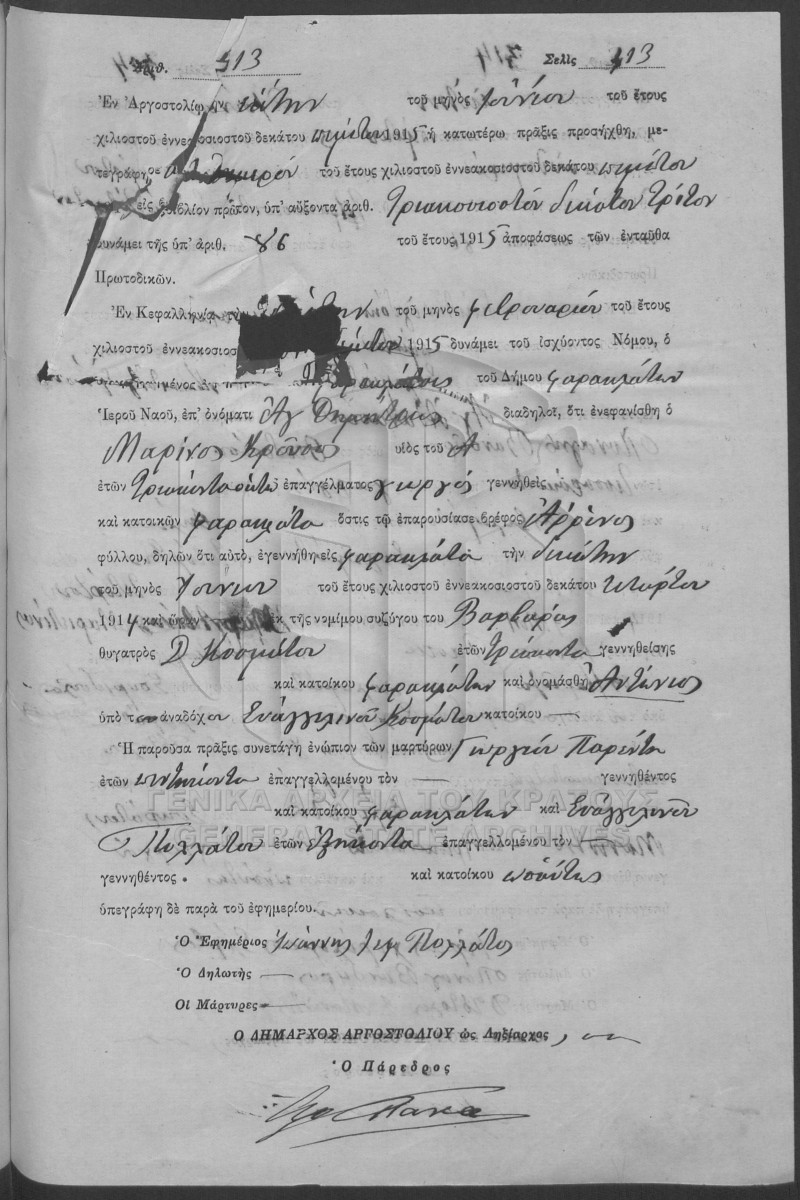 Ἀριθ. 313 314 Σελὶς 113
Ἐν Ἀργοστολίῳ τὴν τοῦ μηνὸς Ἰουνίου τοῦ ἔτους
χιλιοστοῦ ἐννεακοσιοστοῦ δεκάτου πέμπτου 1915 ἡ κατωτέρω πρᾶξις προσήχθη, με-
τεγράφη τοῦ ἔτους χιλιοστοῦ ἐννεακοσιοστοῦ δεκάτου πέμπτου
εἰς βιβλίον πρῶτον, ὑπ' αὔξοντα ἀριθ. Τριακοσιοστὸν δέκατον τρίτον
δυνάμει τῆς ὑπ' ἀριθ. 86 τοῦ ἔτους 1915 ἀποφάσεως τῶν ἐνταῦθα
Πρωτοδικῶν.
Ἐν Κεφαλληνίᾳ τὴν τοῦ μηνὸς Φεβρουαρίου τοῦ ἔτους
χιλιοστοῦ ἐννεακοσιοσ πέμπτου 1915 δυνάμει τοῦ ἰσχύοντος Νόμου, ὁ
Φαρακλάτοις τοῦ Δήμου Φαρακλάτων
Ἱεροῦ Ναοῦ, ἐπ' ὀνόματι Ἁγ Δημητρίου διαδηλοῖ, ὅτι ἐνεφανίσθη ὁ
Μαρίνος Κροῦσος υἱὸς τοῦ Α
ἐτῶν Τριάκοντα ὀκτὼ ἐπαγγέλματος γεωργὸς γεννηθεὶς
καὶ κατοικῶν Φαρακλάτα ὅστις τῷ ἐπαρουσίασε βρέφος Ἄρρενος
φύλλου, δηλῶν ὅτι αὐτὸ, ἐγεννήθη εἰς Φαρακλάτα τὴν δεκάτην
τοῦ μηνὸς Ἰουνίου τοῦ ἔτους χιλιοστοῦ ἐννεακοσιοστοῦ δεκάτου τετάρτου
1914 καὶ ὥραν ἐκ τῆς νομίμου συζύγου του Βαρβάρας
θυγατρὸς Δ Κοσμάτου ἐτῶν τριάκοντα γεννηθείσης
καὶ κατοίκου Φαρακλάτων καὶ ὀνομάσθη Ἀντώνιος
ὑπὸ τοῦ ἀναδόχου Εὐαγγελινοῦ Κοσμάτου κατοίκου —
Ἡ παροῦσα πρᾶξις συνετάγη ἐνώπιον τῶν μαρτύρων Γεωργίου Παρέντη
ἐτῶν πεντήκοντα ἐπαγγελλομένου τὸν — γεννηθέντος
καὶ κατοίκου Φαρακλάτων καὶ Εὐαγγελινοῦ
Πολλάτου ἐτῶν ἑξήκοντα ἐπαγγελλομένου τὸν —
γεννηθέντος καὶ κατοίκου ὡσαύτως
ὑπεγράφη δὲ παρὰ τοῦ ἐφημερίου.
Ὁ Ἐφημέριος Ἰωάννης Πολλάτος
Ὁ Δηλωτὴς —
Οἱ Μάρτυρες —
Ο ΔΗΜΑΡΧΟΣ ΑΡΓΟΣΤΟΛΙΟΥ ὡς Ληξίαρχος
Ὁ Πάρεδρος
ΓΕΝΙΚΑ ΑΡΧΕΙΑ ΤΟΥ ΚΡΑΤΟΥΣ
GENERAL STATE ARCHIVES